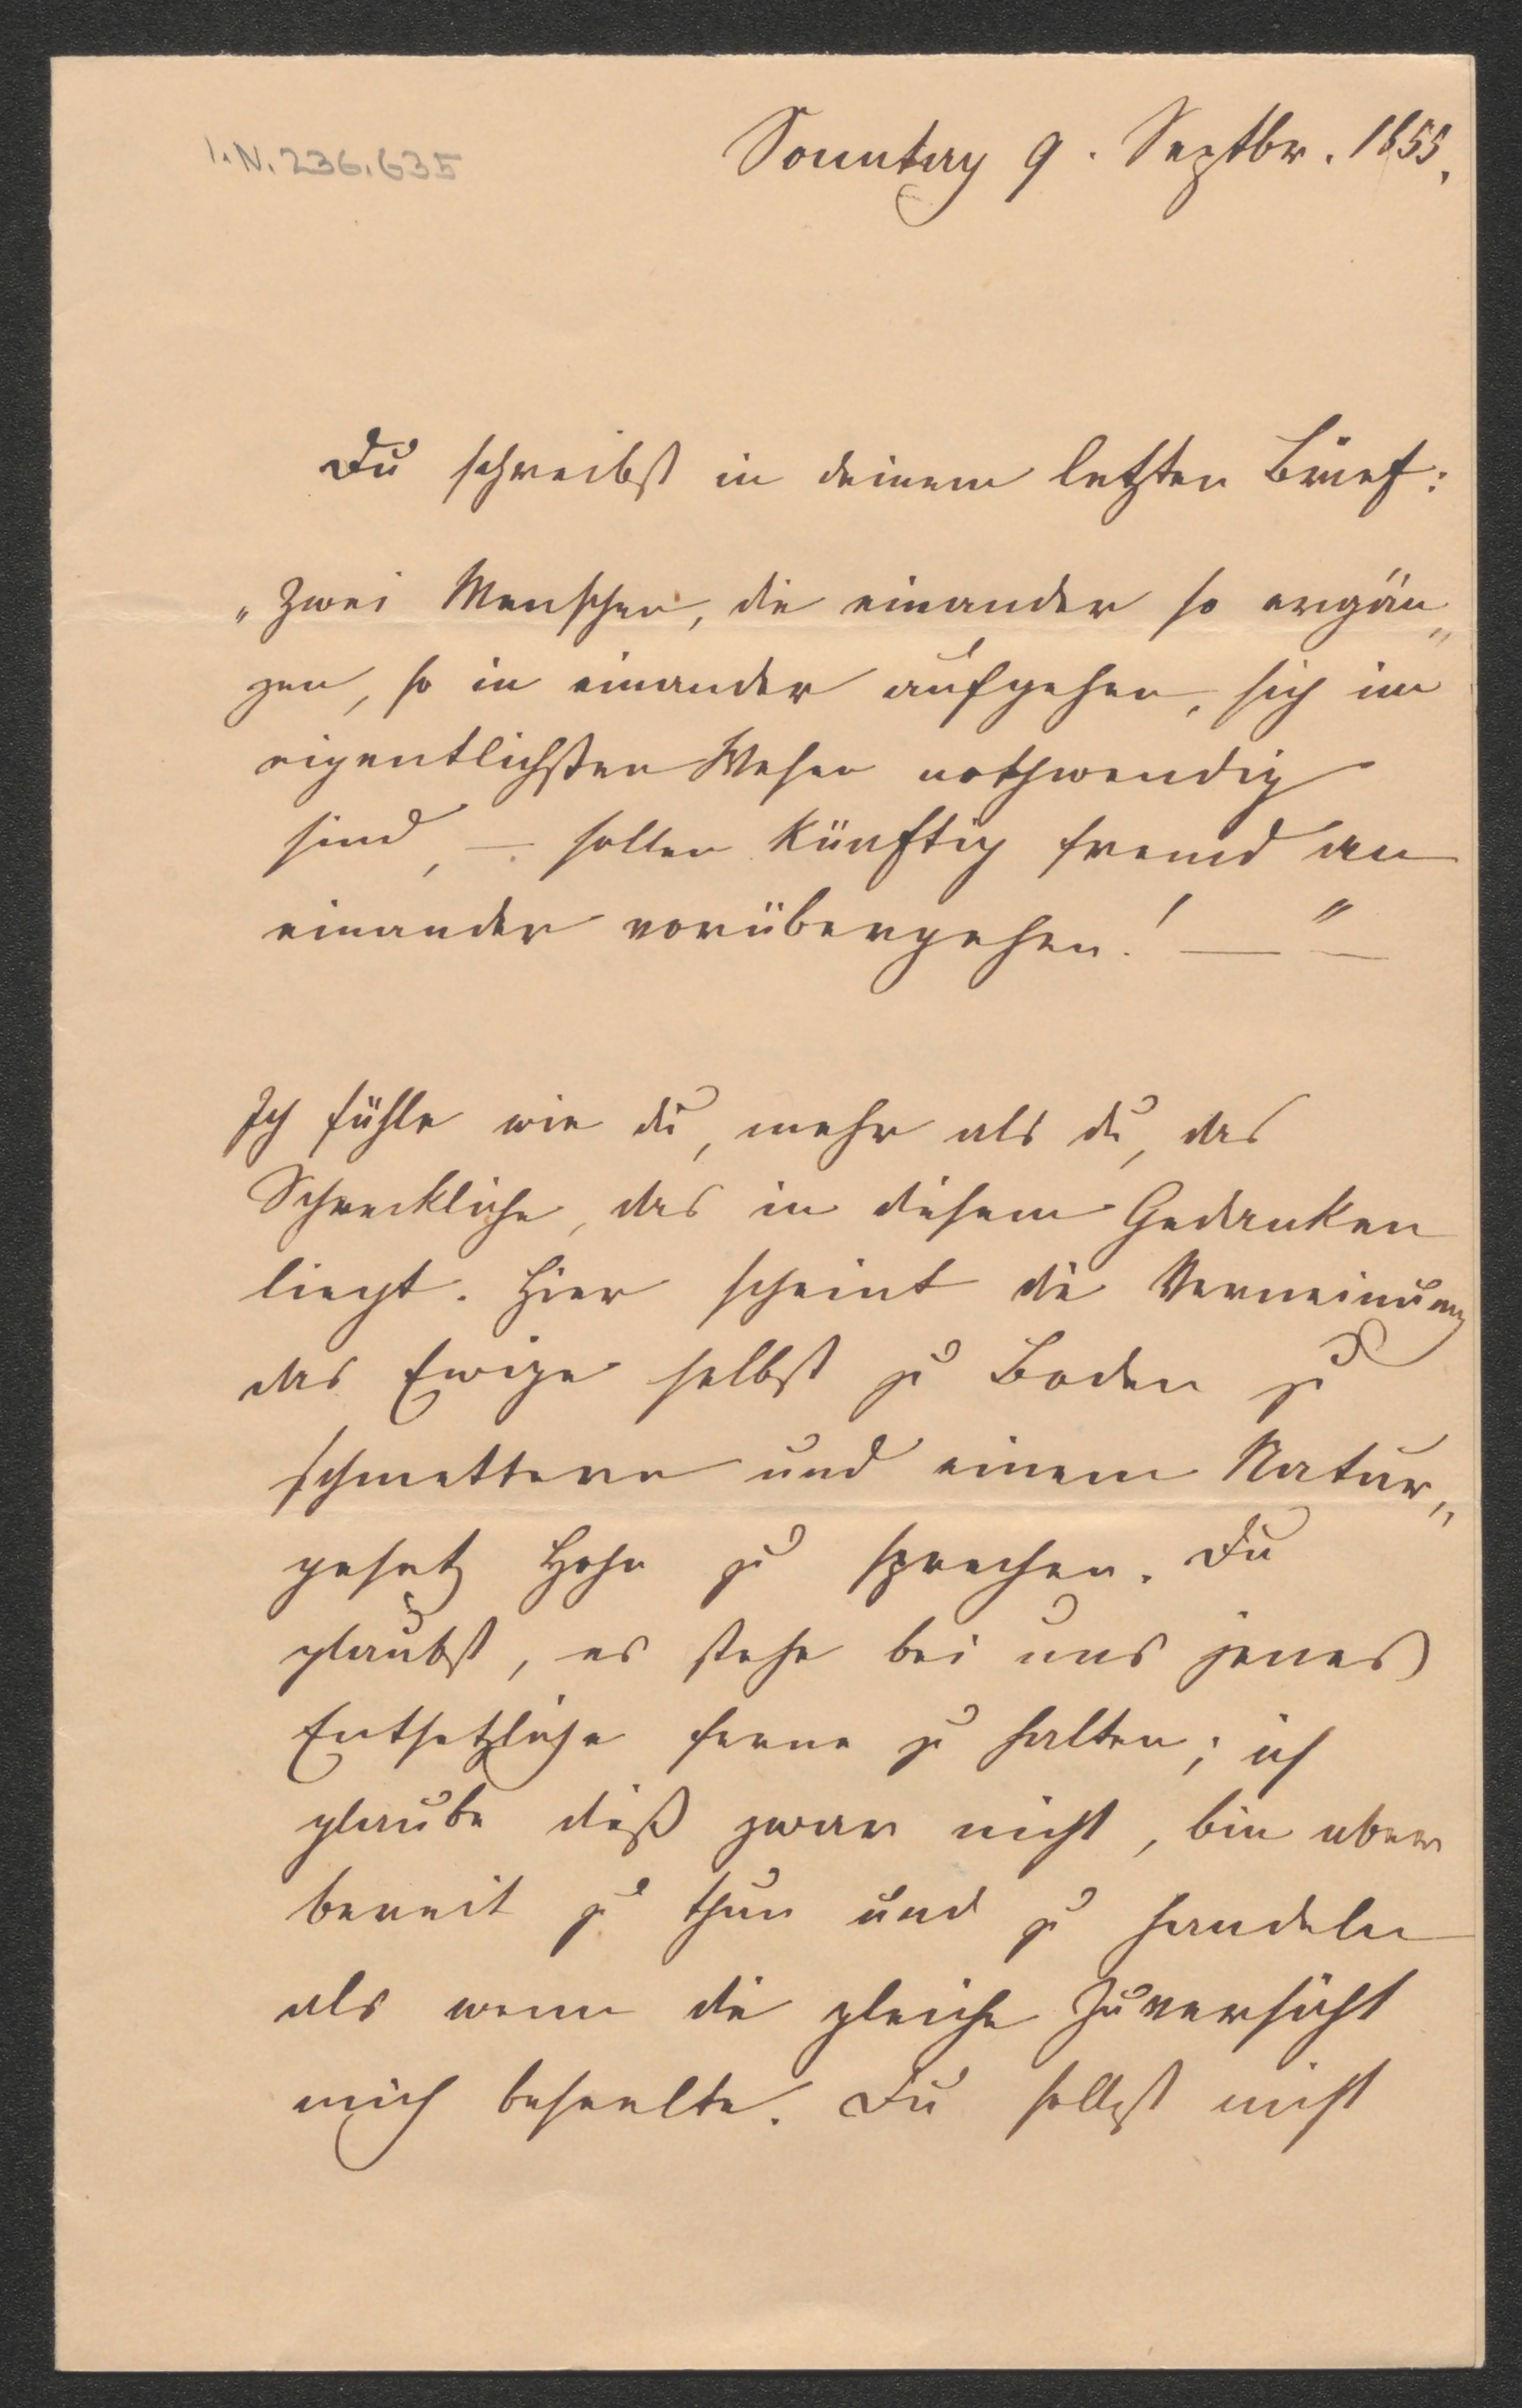 I.N. 236.635
Sonntag 9. Septbr. 1855.
Du schreibst in deinem letzten Brief:
„Zwei Menschen, die einander so ergän„
zen, so in einander aufgehen, sich im
eigentlichsten Wesen nothwendig
sind, — sollen künftig fremd an
einander vorübergehen! — “ —
Ich fühle wie du, mehr als du, das
Schreckliche, das in diesem Gedanken
liegt. Hier scheint die Verneinung
das Ewige selbst zu Boden zu
schmettern und einem Natur„
gesetz Hohn zu sprechen. Du
glaubst, es stehe bei uns jenes
Entsetzliche ferne zu halten; ich
glaube dieß zwar nicht, bin aber
bereit zu thun und zu handeln
als wenn die gleiche Zuversicht
mich beseelte. Du sollst nicht